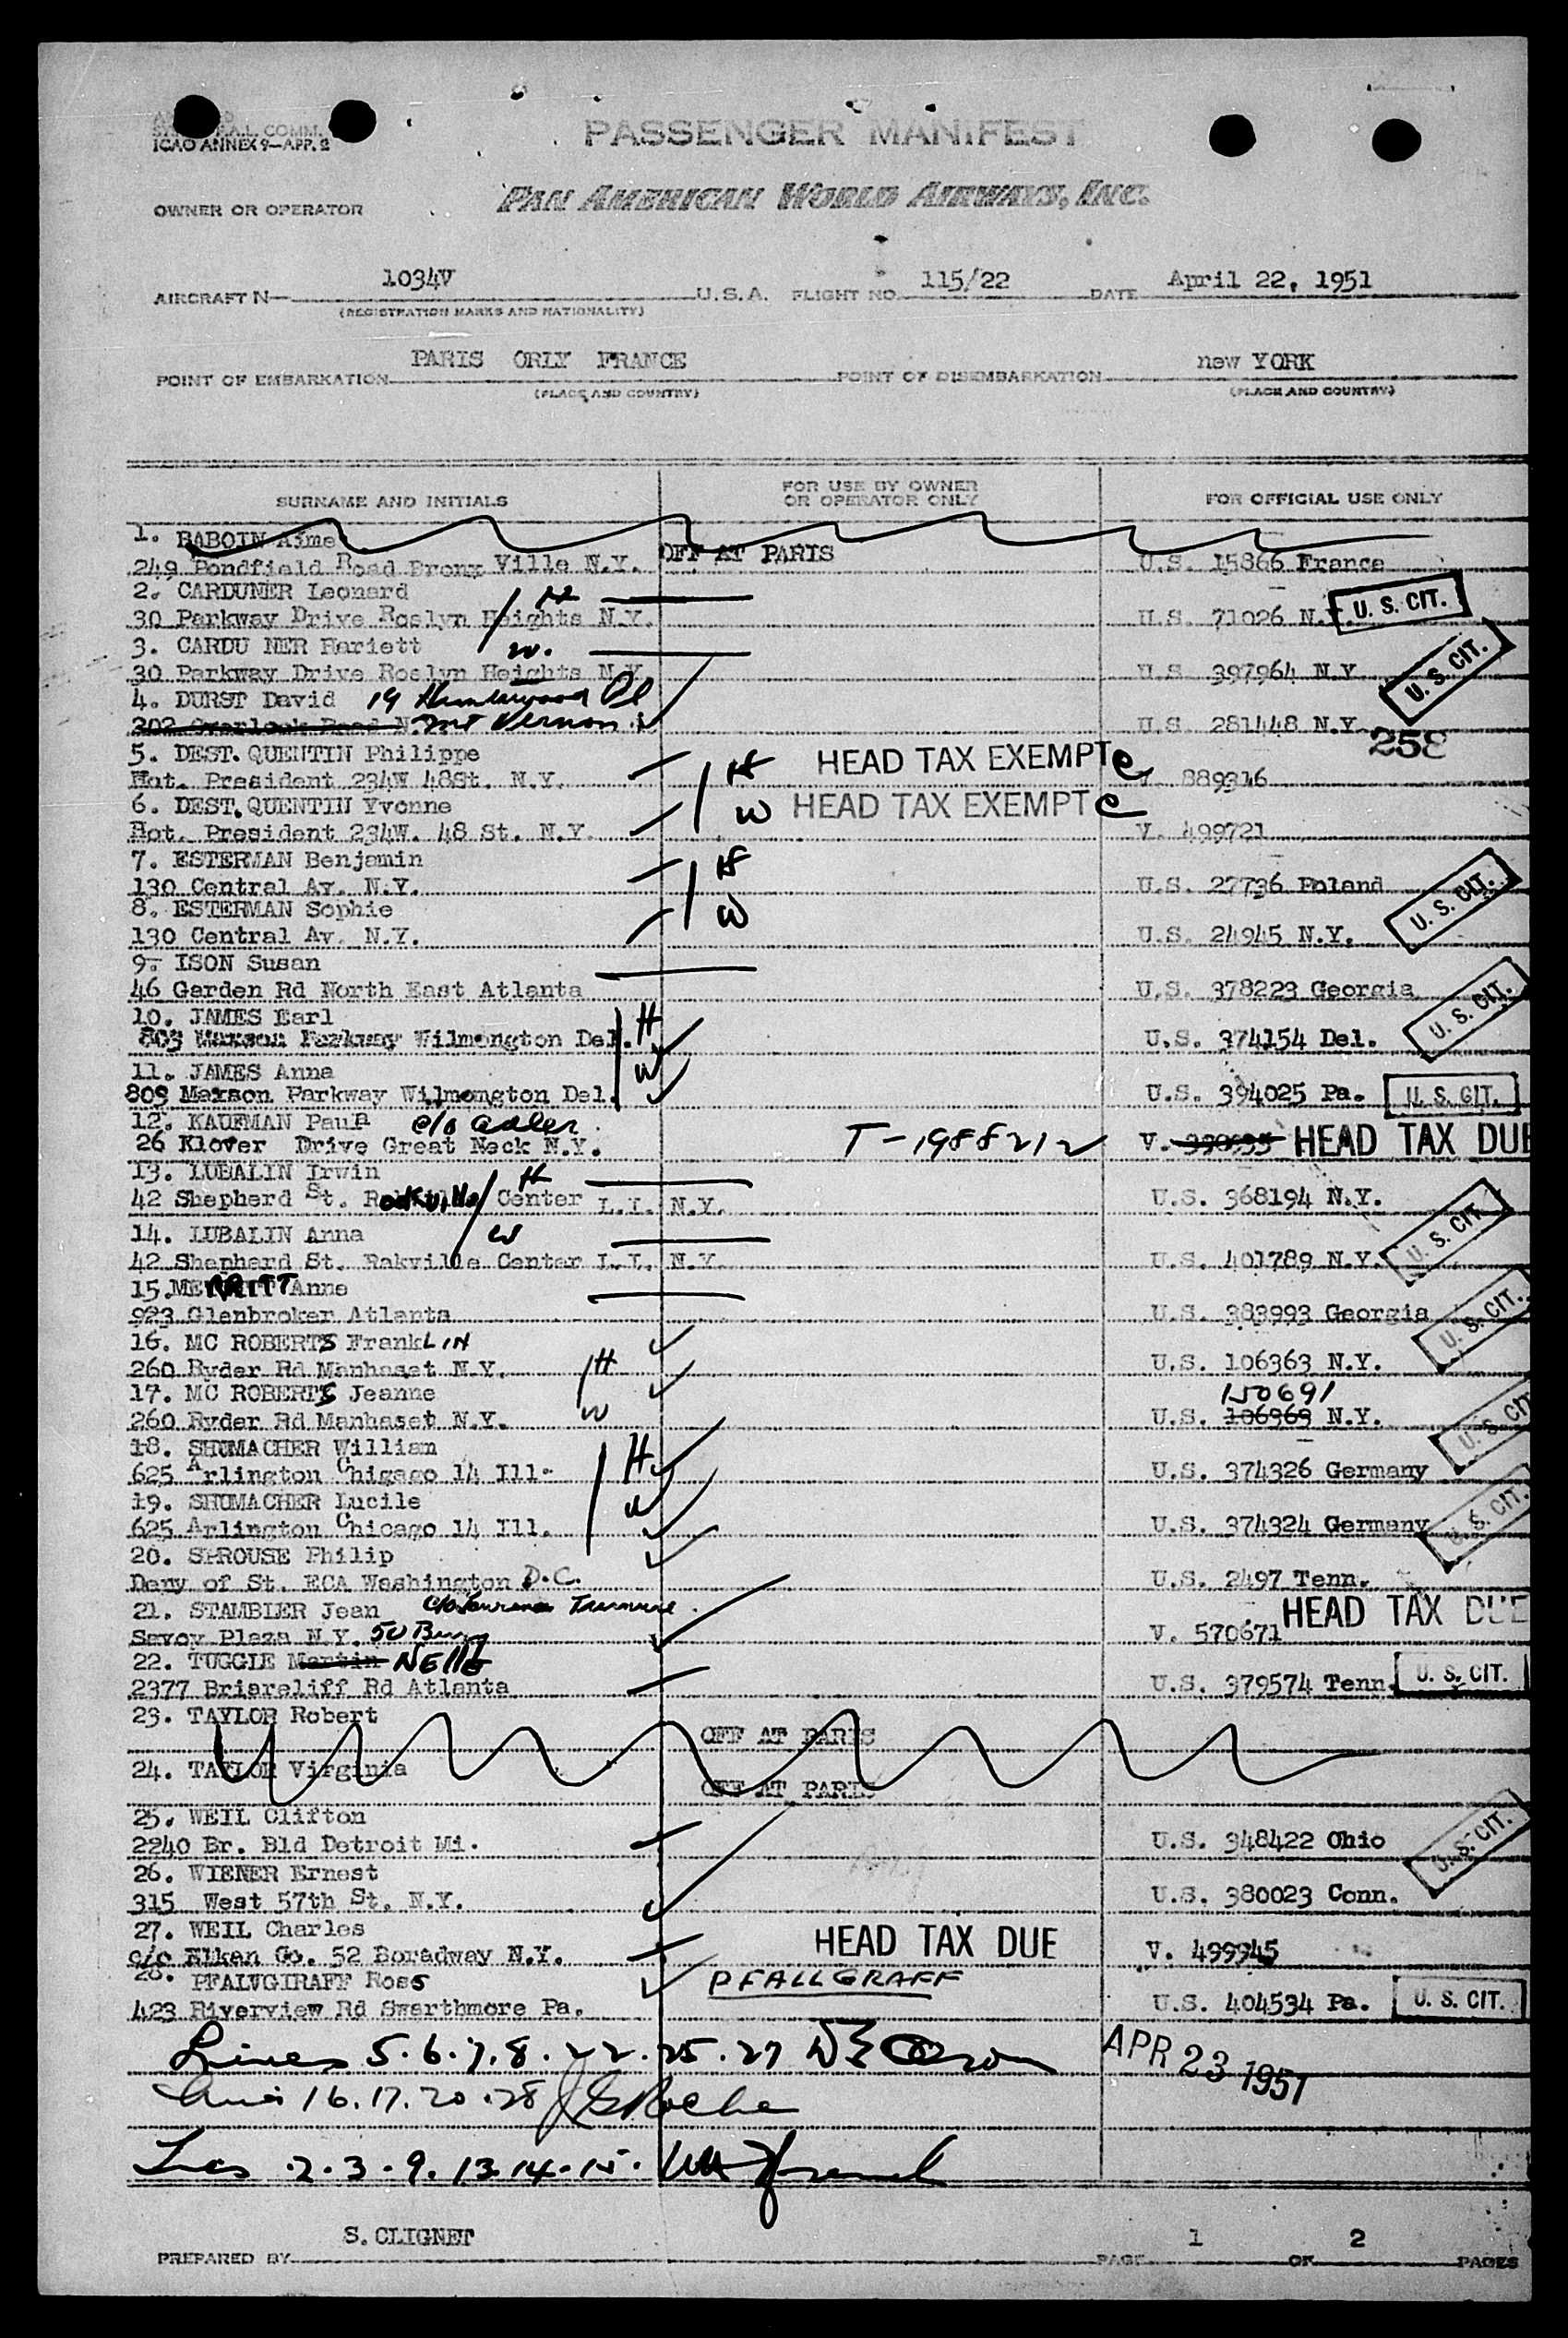 ICAO ANNEX 9—APP. 2
PASSENGER MANIFEST
OWNER OR OPERATOR
PAN AMERICAN WORLD AIRWAYS, INC.
AIRCRAFT N— 1034V U.S.A. FLIGHT NO. 115/22 DATE April 22, 1951
(REGISTRATION MARKS AND NATIONALITY)
POINT OF EMBARKATION PARIS ORLY FRANCE POINT OF DISEMBARKATION new YORK
(PLACE AND COUNTRY) (PLACE AND COUNTRY)
SURNAME AND INITIALS FOR USE BY OWNER OR OPERATOR ONLY FOR OFFICIAL USE ONLY
1. BABOIN Aime
249 Pondfield Road Bronx Ville N.Y. OFF AT PARIS U.S. 15866 France
2. CARDUNER Leonard H
30 Parkway Drive Roslyn Heights N.Y. U.S. 71026 N.Y. U. S. CIT.
3. CARDU NER Hariett W.
30 Parkway Drive Roslyn Heights N.Y. U.S. 397964 N.Y. U. S. CIT.
4. DURST David 19 Pl
302 Overlook Road N. Mt Vernon U.S. 281448 N.Y. 258
5. DEST. QUENTIN Philippe H HEAD TAX EXEMPT e
Hot. President 234W 48St. N.Y. V. 889316
6. DEST. QUENTIN Yvonne W HEAD TAX EXEMPT e
Hot. President 234W. 48 St. N.Y. V. 499721
7. ESTERMAN Benjamin H
130 Central Av. N.Y. U.S. 27736 Poland
8. ESTERMAN Sophie W U. S. CIT.
130 Central Av. N.Y. U.S. 24945 N.Y.
9. ISON Susan
46 Garden Rd North East Atlanta U.S. 378223 Georgia
10. JAMES Earl H U. S. CIT.
803 Maxson Parkway Wilmongton Del. U.S. 374154 Del.
11. JAMES Anna W
809 Maxson Parkway Wilmongton Del. U.S. 394025 Pa. U. S. CIT.
12. KAUFMAN Paula c/o Adler
26 Klover Drive Great Neck N.Y. T-1988212 V. 390635 HEAD TAX DUE
13. LUBALIN Irwin H
42 Shepherd St. Rockville Center L.I. N.Y. U.S. 368194 N.Y.
14. LUBALIN Anna W U. S. CIT.
42 Shepherd St. Rakville Center L.I. N.Y. U.S. 401789 N.Y.
15. MERRITT Anne
923 Glenbroker Atlanta U.S. 383993 Georgia U. S. CIT.
16. MC ROBERTS FrankLIN
260 Ryder Rd Manhaset N.Y. H U.S. 106363 N.Y.
17. MC ROBERTS Jeanne 150691
260 Ryder Rd Manhaset N.Y. W U.S. 106363 N.Y. U. S. CIT
18. SHUMACHER William H
625 Arlington Chigago 14 Ill. U.S. 374326 Germany
19. SHUMACHER Lucile W
625 Arlington Chicago 14 Ill. U.S. 374324 Germany U. S. CIT.
20. SPROUSE Philip
Depy of St. ECA Washington D.C. U.S. 2497 Tenn.
21. STAMBLER Jean c/o HEAD TAX DUE
Savoy Plaza N.Y. 50 V. 570671
22. TUGGLE Martin NEllE
2377 Briarcliff Rd Atlanta U.S. 379574 Tenn. U. S. CIT.
23. TAYLOR Robert
OFF AT PARIS
24. TAYLOR Virginia
OFF AT PARIS
25. WEIL Clifton
2240 Br. Bld Detroit Mi. U.S. 348422 Ohio U. S. CIT.
26. WIENER Ernest
315 West 57th St. N.Y. U.S. 380023 Conn.
27. WEIL Charles HEAD TAX DUE
c/o Elkan Co. 52 Boradway N.Y. V. 499945
28. PFALVGIRAFF Ross PFALLGRAFF
423 Riverview Rd Swarthmore Pa. U.S. 404534 Pa. U. S. CIT.
Lines 5.6.7.8.22.25.27 APR 23 1951
Lines 16.17.20.28 Roche
Lines 2.3.9.13.14.15.
S. CLIGNET
PREPARED BY PAGE 1 OF 2 PAGES